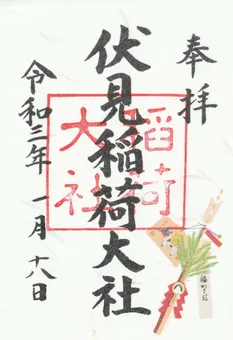 奉拝
伏見稲荷大社
令和三年一月十八日
稲荷
大社